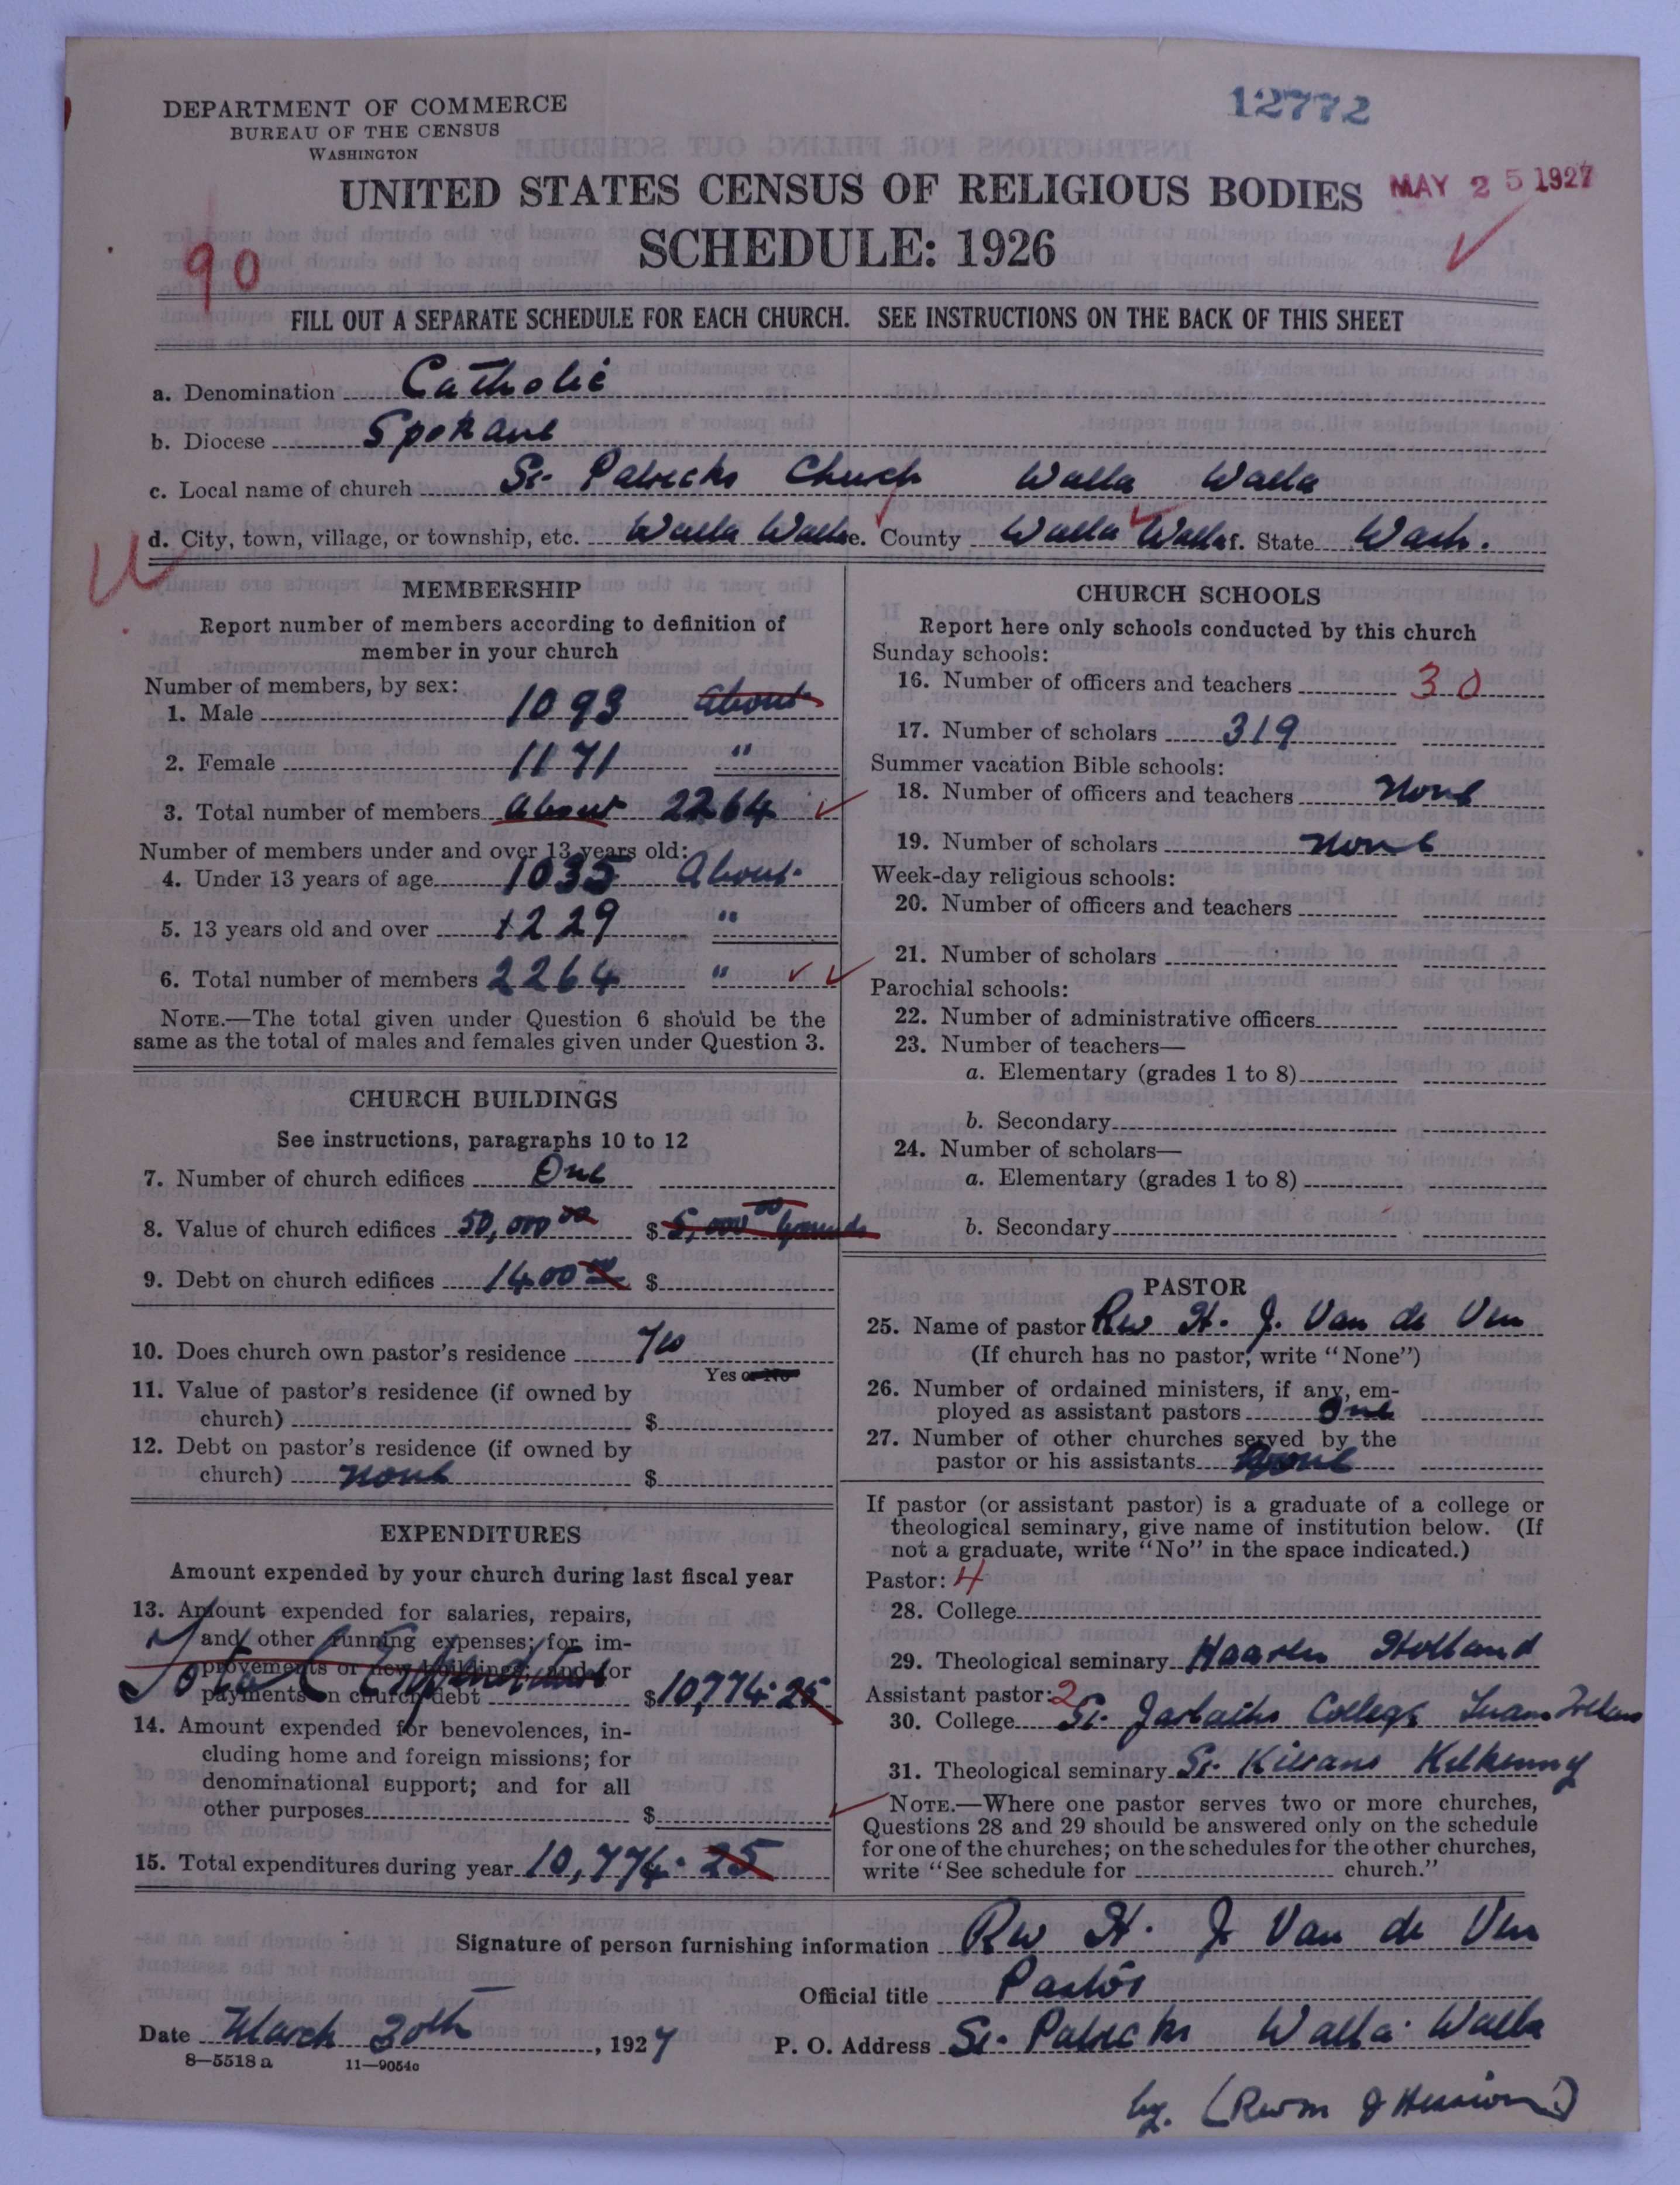 12772
DEPARTMENT OF COMMERCE
BUREAU OF THE CENSUS
WASHINGTON
UNITED STATES CENSUS OF RELIGIOUS BODIES
MAY 25 1927
SCHEDULE: 1926
90
FILL OUT A SEPARATE SCHEDULE FOR EACH CHURCH. SEE INSTRUCTIONS ON THE BACK OF THIS SHEET
a. Denomination Catholic
b. Diocese Spokane
c. Local name of church St. Patricks Church Walla Walla
d. City, town, village, or township, etc. Walla Walla e. County Walla Walla f. State Wash.
MEMBERSHIP
Report number of members according to definition of
member in your church
Number of members, by sex:
1. Male 1093 about
2. Female 1171 "
3. Total number of members About 2264
Number of members under and over 13 years old:
4. Under 13 years of age 1035 About
5. 13 years old and over 1229 "
6. Total number of members 2264 "
NOTE.—The total given under Question 6 should be the
same as the total of males and females given under Question 3.
CHURCH BUILDINGS
See instructions, paragraphs 10 to 12
7. Number of church edifices One
8. Value of church edifices 50,000 00 $ 5,000 00 grounds
9. Debt on church edifices 1400 00 $
10. Does church own pastor's residence Yes
Yes or No
11. Value of pastor's residence (if owned by
church) $
12. Debt on pastor's residence (if owned by
church) None $
EXPENDITURES
Amount expended by your church during last fiscal year
13. Amount expended for salaries, repairs,
and other running expenses; for im-
provements or new buildings; and for
payments on church debt $10,774.25
Total Expenditures
14. Amount expended for benevolences, in-
cluding home and foreign missions; for
denominational support; and for all
other purposes $
15. Total expenditures during year $10,774.25
CHURCH SCHOOLS
Report here only schools conducted by this church
Sunday schools:
16. Number of officers and teachers 30
17. Number of scholars 319
Summer vacation Bible schools:
18. Number of officers and teachers None
19. Number of scholars None
Week-day religious schools:
20. Number of officers and teachers
21. Number of scholars
Parochial schools:
22. Number of administrative officers
23. Number of teachers—
a. Elementary (grades 1 to 8)
b. Secondary
24. Number of scholars—
a. Elementary (grades 1 to 8)
b. Secondary
PASTOR
25. Name of pastor Rev H. J. Van de Ven
(If church has no pastor, write "None")
26. Number of ordained ministers, if any, em-
ployed as assistant pastors One
27. Number of other churches served by the
pastor or his assistants None
If pastor (or assistant pastor) is a graduate of a college or
theological seminary, give name of institution below. (If
not a graduate, write "No" in the space indicated.)
Pastor: 4
28. College
29. Theological seminary Haaren Holland
Assistant pastor: 2
30. College St. Jarlaths College Tuam Ireland
31. Theological seminary St. Kierans Kilkenny
NOTE.—Where one pastor serves two or more churches,
Questions 28 and 29 should be answered only on the schedule
for one of the churches; on the schedules for the other churches,
write "See schedule for church."
Signature of person furnishing information Rev H. J Van de Ven
Official title Pastor
Date March 30th, 1927 P. O. Address St. Patricks Walla Walla
8—5518 a 11—9054c
by. (Rev